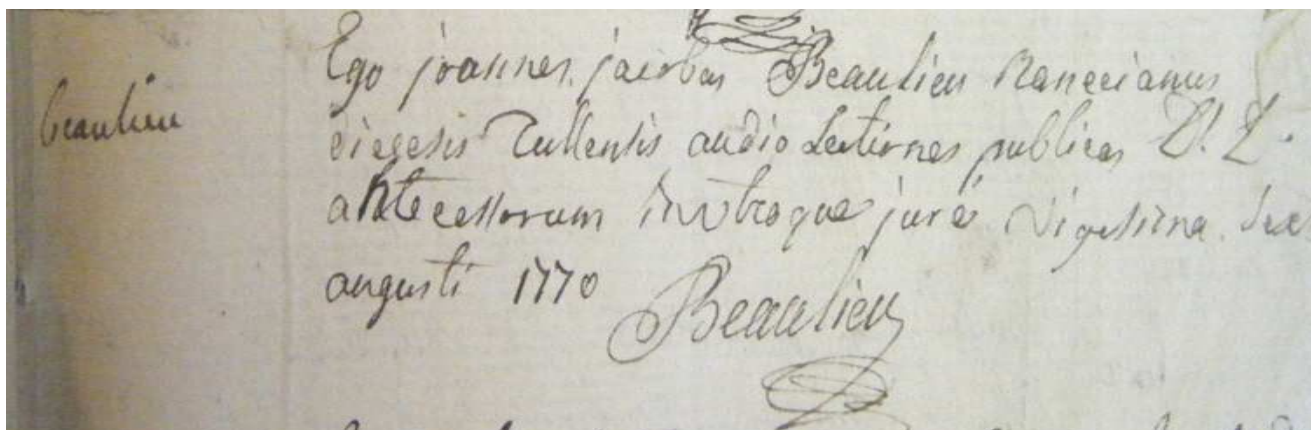 beaulieu
Ego joannes jacobus Beaulieu Nanceianus
diegesis Tullensis audio Lectiones publicas D. D.
antecessorum in utroque jure vigesima sex
augusti 1770
Beaulieu